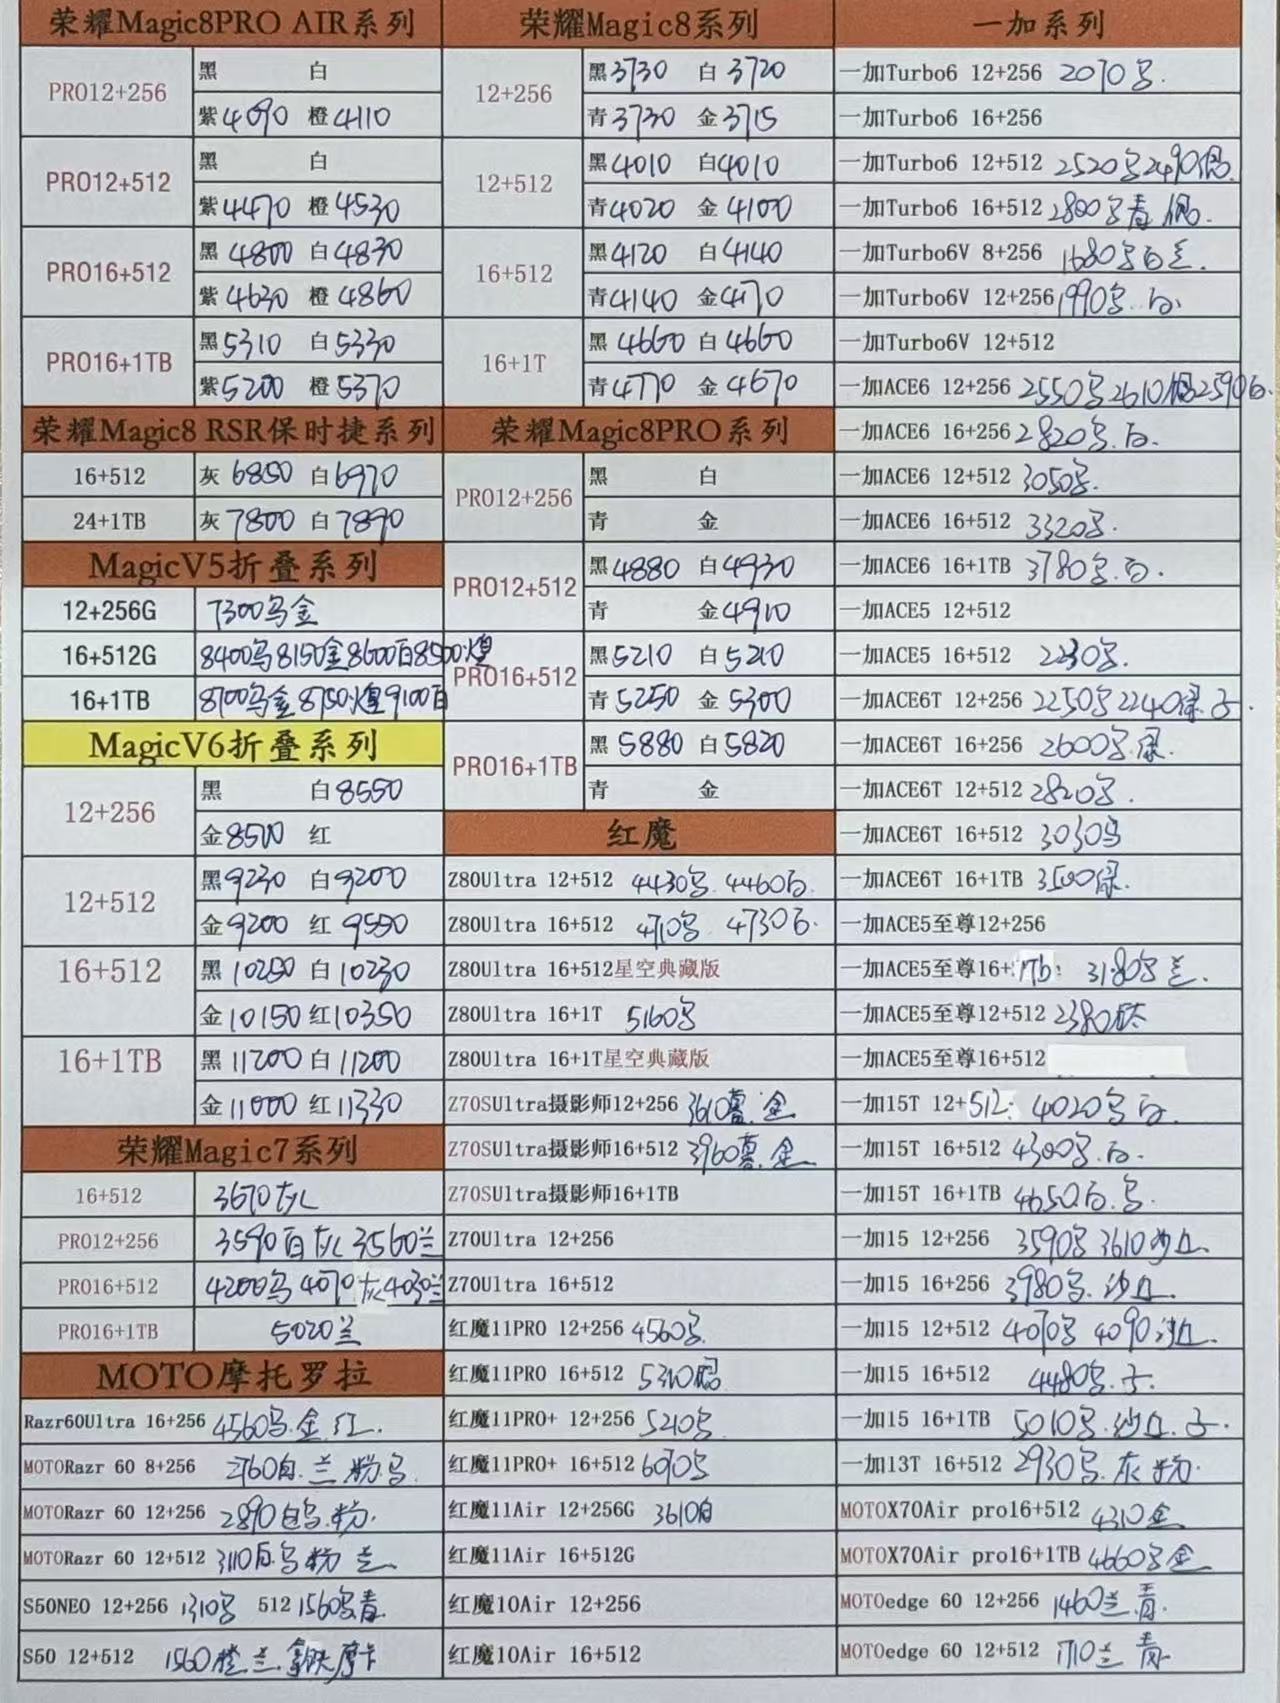 荣耀Magic8PRO AIR系列
PRO12+256
黑 白
紫4090 橙4110
PRO12+512
黑 白
紫4470 橙4530
PRO16+512
黑4800 白4830
紫4630 橙4860
PRO16+1TB
黑5310 白5330
紫5200 橙5370
荣耀Magic8 RSR保时捷系列
16+512 灰6850 白6970
24+1TB 灰7800 白7890
MagicV5折叠系列
12+256G 7300乌金
16+512G 8400乌8150金8600白8500煌
16+1TB 8700乌金8750煌9100白
MagicV6折叠系列
12+256
黑 白8550
金8500 红
12+512
黑9230 白9200
金9200 红9550
16+512
黑10280 白10230
金10150 红10350
16+1TB
黑11200 白11200
金11000 红11330
荣耀Magic7系列
16+512 3670灰
PRO12+256 3590白灰 3560兰
PRO16+512 4200乌4070灰4030兰
PRO16+1TB 5020兰
MOTO摩托罗拉
Razr60Ultra 16+256 4560乌.金.红.
MOTORazr 60 8+256 2760白.兰.粉.乌.
MOTORazr 60 12+256 2890白乌.粉.
MOTORazr 60 12+512 3110白.乌.粉.兰.
S50NEO 12+256 1310乌 512 1560乌青
S50 12+512 1560橙.兰.拿铁.摩卡
荣耀Magic8系列
12+256
黑3730 白3720
青3730 金3715
12+512
黑4010 白4010
青4020 金4100
16+512
黑4120 白4140
青4140 金4170
16+1T
黑4660 白4660
青4770 金4670
荣耀Magic8PRO系列
PRO12+256
黑 白
青 金
PRO12+512
黑4880 白4930
青 金4910
PRO16+512
黑5210 白5210
青5250 金5300
PRO16+1TB
黑5880 白5820
青 金
红魔
Z80Ultra 12+512 4430乌.4460白.
Z80Ultra 16+512 4710乌 4730白.
Z80Ultra 16+512星空典藏版
Z80Ultra 16+1T 5160乌
Z80Ultra 16+1T星空典藏版
Z70SUltra摄影师12+256 3610 金
Z70SUltra摄影师16+512 3960 金
Z70SUltra摄影师16+1TB
Z70Ultra 12+256
Z70Ultra 16+512
红魔11PRO 12+256 4560乌.
红魔11PRO 16+512 5310
红魔11PRO+ 12+256 5210乌
红魔11PRO+ 16+512 6090乌
红魔11Air 12+256G 3610白
红魔11Air 16+512G
红魔10Air 12+256
红魔10Air 16+512
一加系列
一加Turbo6 12+256 2070乌.
一加Turbo6 16+256
一加Turbo6 12+512 2520乌2490银.
一加Turbo6 16+512 2800乌青 银.
一加Turbo6V 8+256 1680乌白兰.
一加Turbo6V 12+256 1990乌.白.
一加Turbo6V 12+512
一加ACE6 12+256 2550乌2610银2590白.
一加ACE6 16+256 2820乌.白.
一加ACE6 12+512 3050乌.
一加ACE6 16+512 3320乌.
一加ACE6 16+1TB 3780乌.白.
一加ACE5 12+512
一加ACE5 16+512 2230乌.
一加ACE6T 12+256 2250乌2240绿.子.
一加ACE6T 16+256 2600乌.绿.
一加ACE6T 12+512 2820乌.
一加ACE6T 16+512 3030乌
一加ACE6T 16+1TB 3500绿.
一加ACE5至尊12+256
一加ACE5至尊16+1Tb: 3180乌兰.
一加ACE5至尊12+512 2380
一加ACE5至尊16+512
一加15T 12+512: 4020乌白.
一加15T 16+512 4300乌.白.
一加15T 16+1TB 4650白.乌.
一加15 12+256 3590乌 3610沙丘.
一加15 16+256 3980乌.沙丘.
一加15 12+512 4070乌 4090沙丘.
一加15 16+512 4480乌.子.
一加15 16+1TB 5010乌.沙丘.子.
一加13T 16+512 2930乌.灰.粉.
MOTOX70Air pro16+512 4310金
MOTOX70Air pro16+1TB 4660乌金.
MOTOedge 60 12+256 1460兰.青.
MOTOedge 60 12+512 1710兰 青.